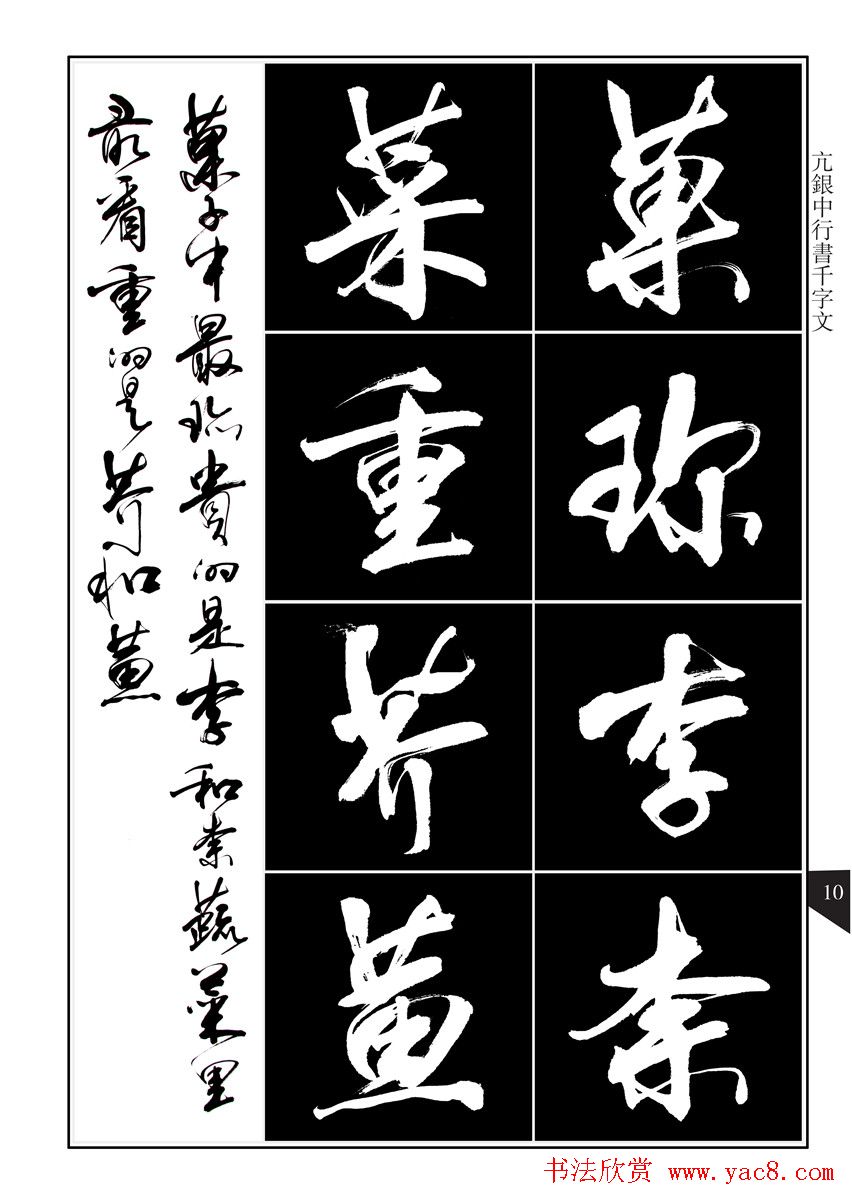 亢銀中行書千字文
10
菓珍李柰
菜重芥薑
菓子中最珍貴的是李和柰蔬菜里
最看重的是芥和薑
书法欣赏 www.yac8.com